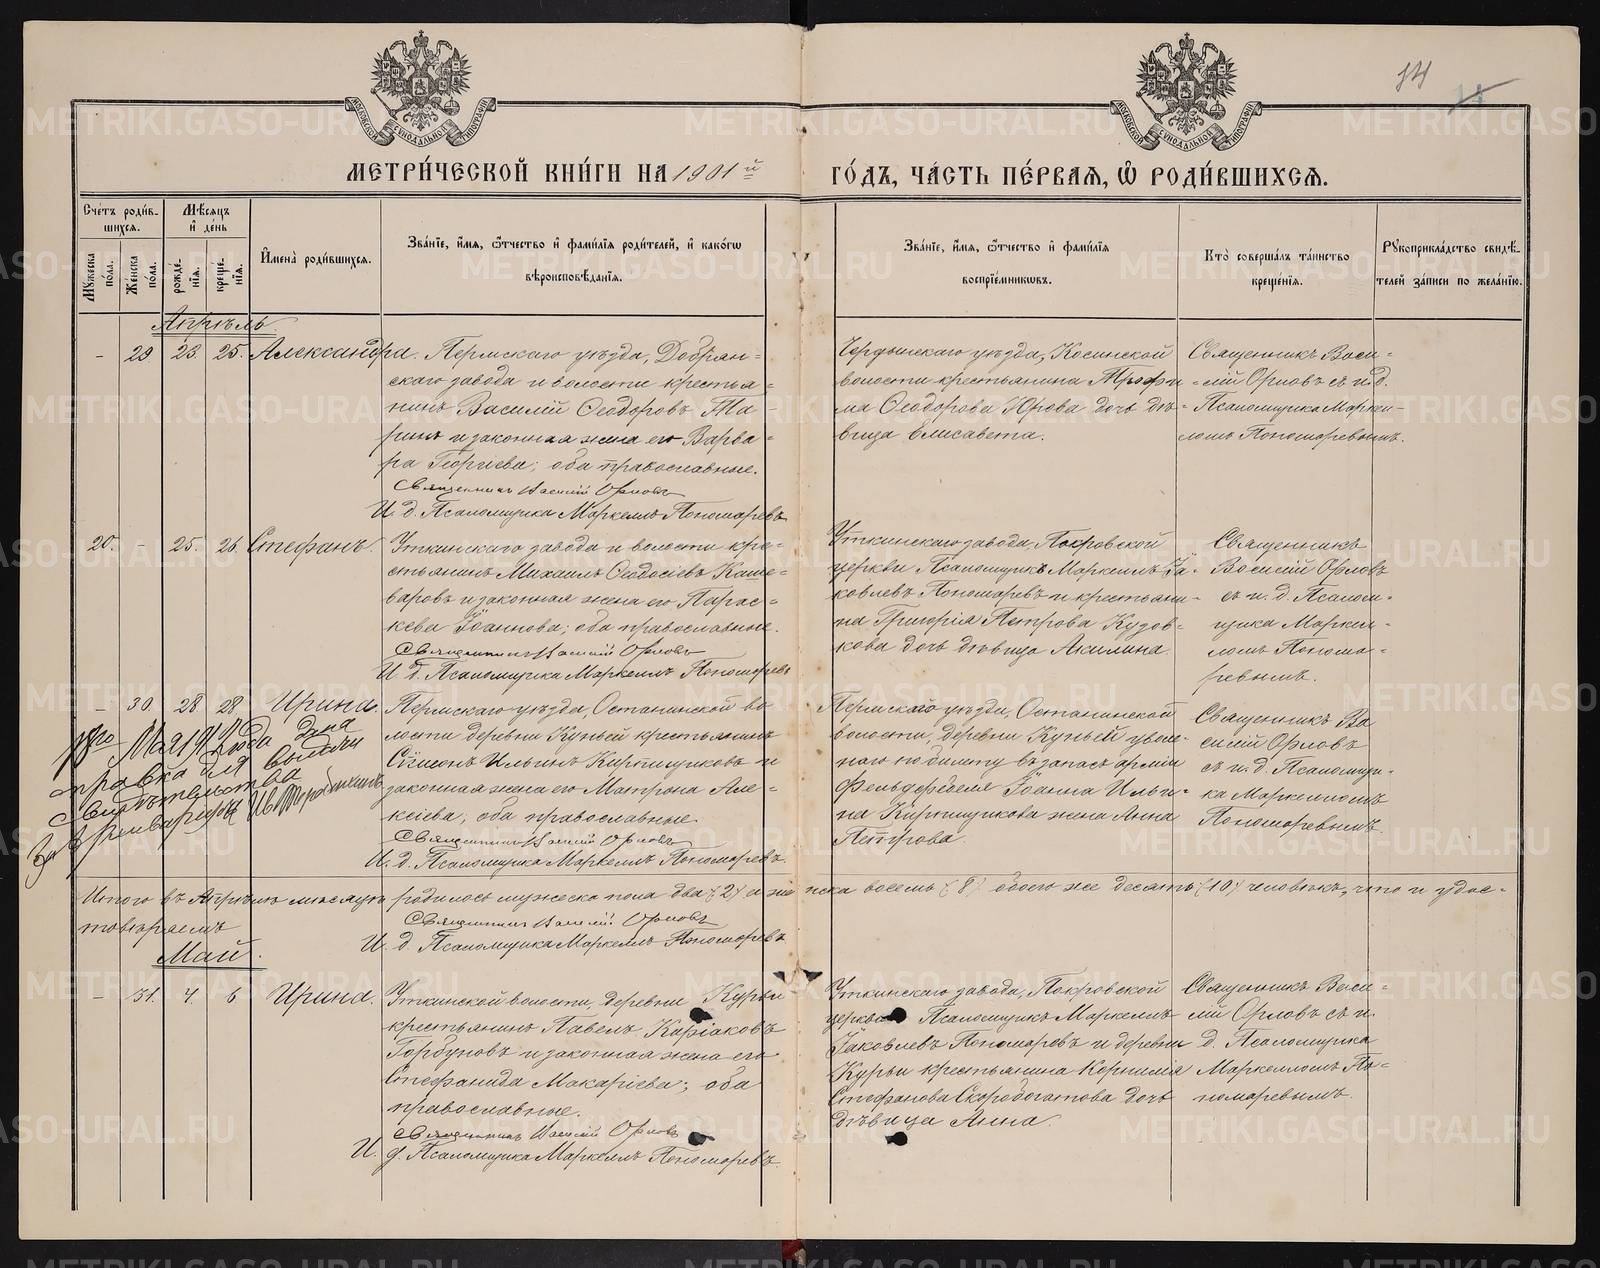 14
МЕТРИ́ЧЕСКОЙ КНИ́ГИ НА 1901й ГО́ДЪ, ЧА́СТЬ ПЕ́РВАЯ, Ѡ РОДИ́ВШИХСЯ.
Сче́тъ роди́в-
шихся.
Мѣ́сяцъ
и҆ де́нь
Мꙋ́жеска пола.
Же́нска по́ла.
рожде́-
нїѧ.
креще́-
нїѧ.
И҆мена̀ роди́вшихся.
Зва́нїе, и҆́мя, ѻ҆́тчество и҆ фами́лїя роди́телей, и҆ како́гѡ
вѣроисповѣ́данїя.
Зва́нїе, и҆́мя, ѻ҆́тчество и҆ фами́лїя
воспрїе́мникѡвъ.
Кто̀ соверша́лъ та́инство
креще́нїя.
Рꙋкоприкла́дство свидѣ́-
телей за́писи по жела́нїю.
Апрѣль.
- 29 23. 25. Александра.
Пермскаго уѣзда, Добрян=
скаго завода и волости крестья=
нинъ Василій Ѳеодоровъ Та-
ринъ и законная жена его Варва=
ра Георгіева; оба православные.
Священникъ Василій Орловъ
И. д. Псаломщика Маркеллъ Пономаревъ
Чердынскаго уѣзда, Косинской
волости крестьянина Трофи
ма Ѳеодорова Юрова дочь дѣ-
вица Елисавета.
Священникъ Васи-
лій Орловъ съ и.д.
Псаломщика Маркел-
ломъ Пономаревымъ.
20. - 25. 26. Стефанъ.
Уткинскаго завода и волости кре-
стьянинъ Михаилъ Ѳеодосіевъ Каше-
варовъ и законная жена его Парас-
кева Іоаннова; оба православные.
Священникъ Василій Орловъ
И. д. Псаломщика Маркеллъ Пономаревъ
Уткинскаго завода, Покровской
церкви Псаломщикъ Маркеллъ Іа-
ковлевъ Пономаревъ и крестьяни-
на Григорія Петрова Кузов-
кова дочь дѣвица Акилина.
Священникъ
Василій Орловъ
съ и. д. Псалом-
щика Маркел-
ломъ Понома-
ревымъ.
- 30. 28 28 Ирина.
Пермскаго уѣзда, Останинской во
лости деревни Куньей крестьянинъ
Сѵмеонъ Ильинъ Кирпищиковъ и
законная жена его Матрона Але-
ксіева, оба православные.
Священникъ Василій Орловъ
И. д. Псаломщика Маркеллъ Пономаревъ.
Пермскаго уѣзда, Останинской
волости, деревни Куньей уволе-
наго по билету въ запасъ арміи
Фельдфебеля Іоанна Ильи-
на Кирпищикова жена Анна
Петрова.
Священникъ Ва
силій Орловъ
съ и. д. Псаломщи-
ка Маркелломъ
Пономаревымъ.
Мая года дана
справка для выдачи
свидѣтельства
Итого въ Апрѣлѣ мѣсяцѣ родилось мужеска пола два (2) а женска восемь (8) обоего же десять (10) человѣкъ, что и удос-
товѣряемъ
Священникъ Василій Орловъ
И. д. Псаломщика Маркеллъ Пономаревъ
Май.
- 31. 4. 6 Ирина.
Уткинской волости, деревни Курьи
крестьянинъ Павелъ Киріаковъ
Горбуновъ и законная жена его
Стефанида Макаріева; оба
православные.
Священникъ Василій Орловъ
И. д. Псаломщика Маркеллъ Пономаревъ.
Уткинскаго завода, Покровской
церкви Псаломщикъ Маркеллъ
Іаковлевъ Пономаревъ и деревни
Курьи крестьянина Корнилія
Стефанова Скоробогатова дочь
дѣвица Анна.
Священникъ Васи-
лій Орловъ съ и.
д. Псаломщика
Маркелломъ По-
номаревымъ.
METRIKI.GASO-URAL.RU